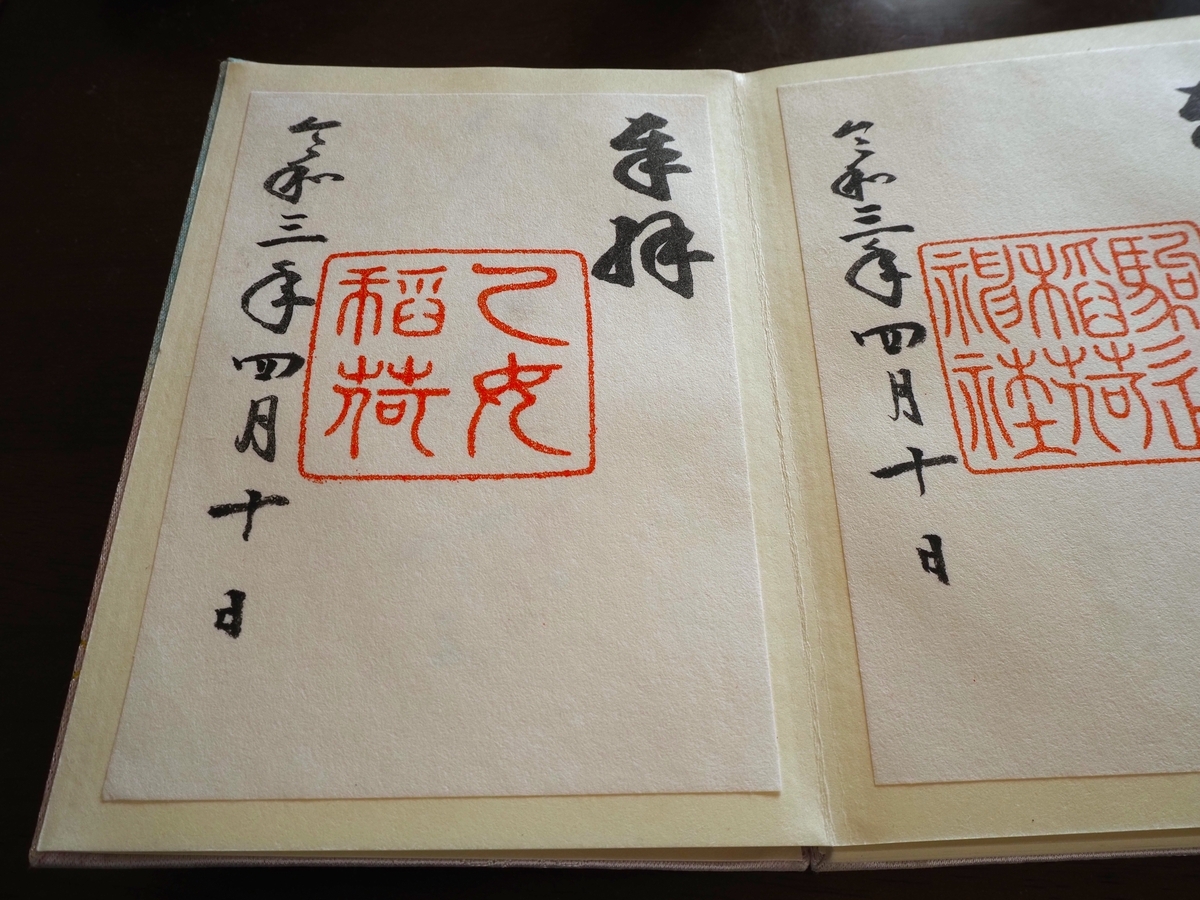 駒込
稲荷
神社
令和三年四月十日
奉拝
乙女
稲荷
令和三年四月十日